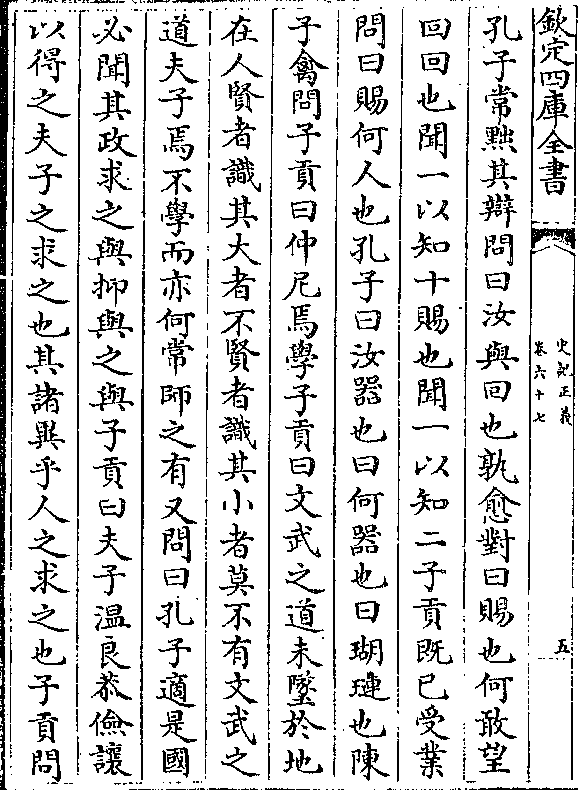 欽定四庫全書
史記正義
卷六十七
五
孔子常黜其辯問曰汝與回也孰愈對曰賜也何敢望
回回也聞一以知十賜也聞一以知二子貢既已受業
問曰賜何人也孔子曰汝器也曰何器也曰瑚璉也陳
子禽問子貢曰仲尼焉學子貢曰文武之道未墜於地
在人賢者識其大者不賢者識其小者莫不有文武之
道夫子焉不學而亦何常師之有又問曰孔子適是國
必聞其政求之與抑與之與子貢曰夫子溫良恭儉讓
以得之夫子之求之也其諸異乎人之求之也子貢問